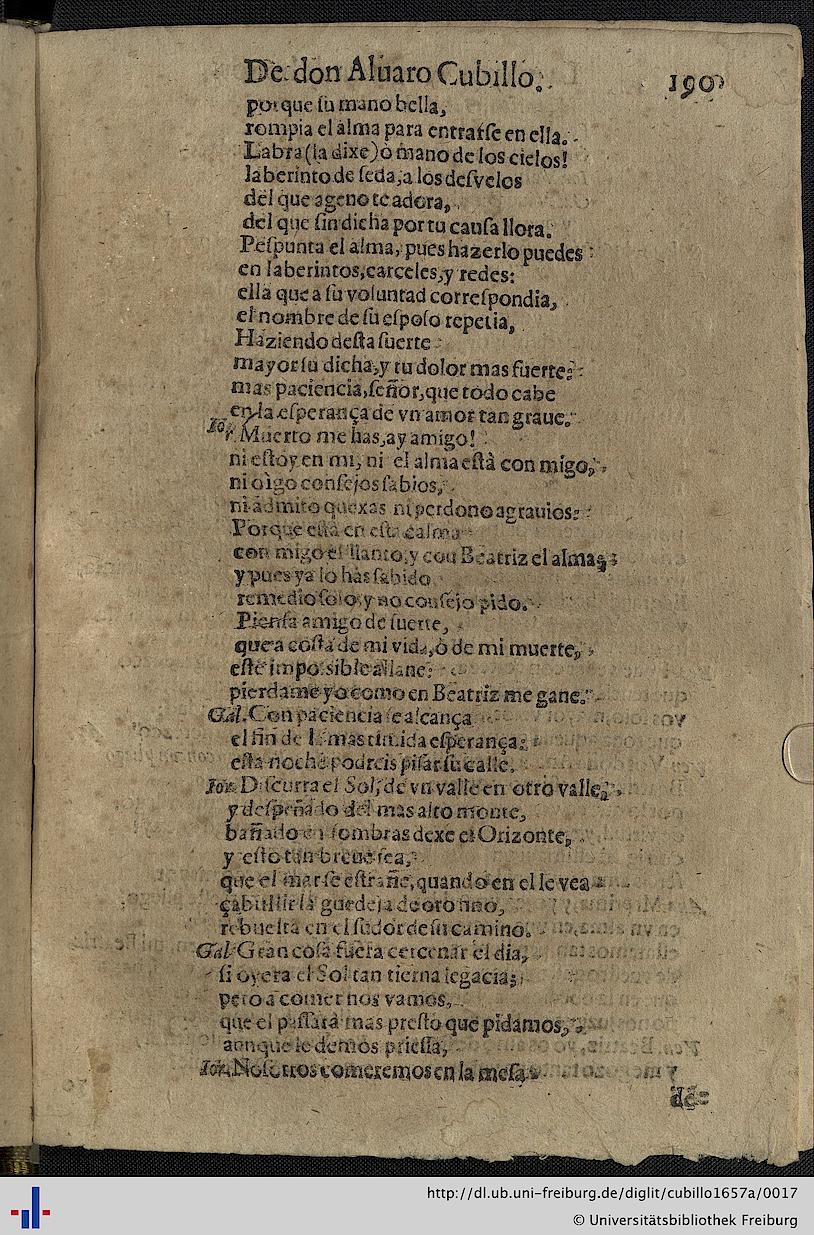 De don Aluaro Cubillo. 190
porque ſu mano bella,
rompia el alma para entrarſe en ella.
Labra (la dixe) ò mano de los cielos!
laberinto de ſeda, a los deſvelos
del que ageno te adora,
del que ſin dicha por tu cauſa llora.
Peſpunta el alma, pues hazerlo puedes
en laberintos, carceles, y redes:
ella que a ſu voluntad correſpondia,
el nombre de ſu eſpoſo repetia,
Haziendo deſta ſuerte
mayor ſu dicha, y tu dolor mas fuerte:
mas paciencia, ſeñor, que todo cabe
en la eſperança de vn amor tan graue.
Ior. Muerto me has, ay amigo!
ni eſtoy en mi, ni el alma eſtà con migo,
ni oìgo conſejos ſabios,
ni admito quexas ni perdono agrauios:
Porque eſtà en eſta calma
con migo el llanto, y con Beatriz el alma,
y pues ya lo has ſabido
remedio ſolo, y no conſejo pido.
Pienſa amigo de ſuerte,
que a coſta de mi vida, ò de mi muerte,
eſte impoſsible allane:
pierdame yo como en Beatriz me gane.
Gal. Con paciencia ſe alcança
el fin de la mas timida eſperança:
eſta noche podreis piſar ſu calle.
Ior. Diſcurra el Sol, de vn valle en otro valle,
y deſpeñado del mas alto monte,
bañado en ſombras dexe el Orizonte,
y eſto tan breue ſea,
que el mar ſe eſtrañe, quando en el le vea
çabullir la guedeja de oro fino,
rebuelta en el ſudor de ſu camino.
Gal. Gran coſa fuera cercenar el dia,
ſi oyera el Sol tan tierna legacia;
pero a comer nos vamos,
que el paſſarà mas preſto que pidamos,
aunque le demos prieſſa,
Ior. Noſotros comeremos en la meſa
de-
http://dl.ub.uni-freiburg.de/diglit/cubillo1657a/0017
© Universitätsbibliothek Freiburg